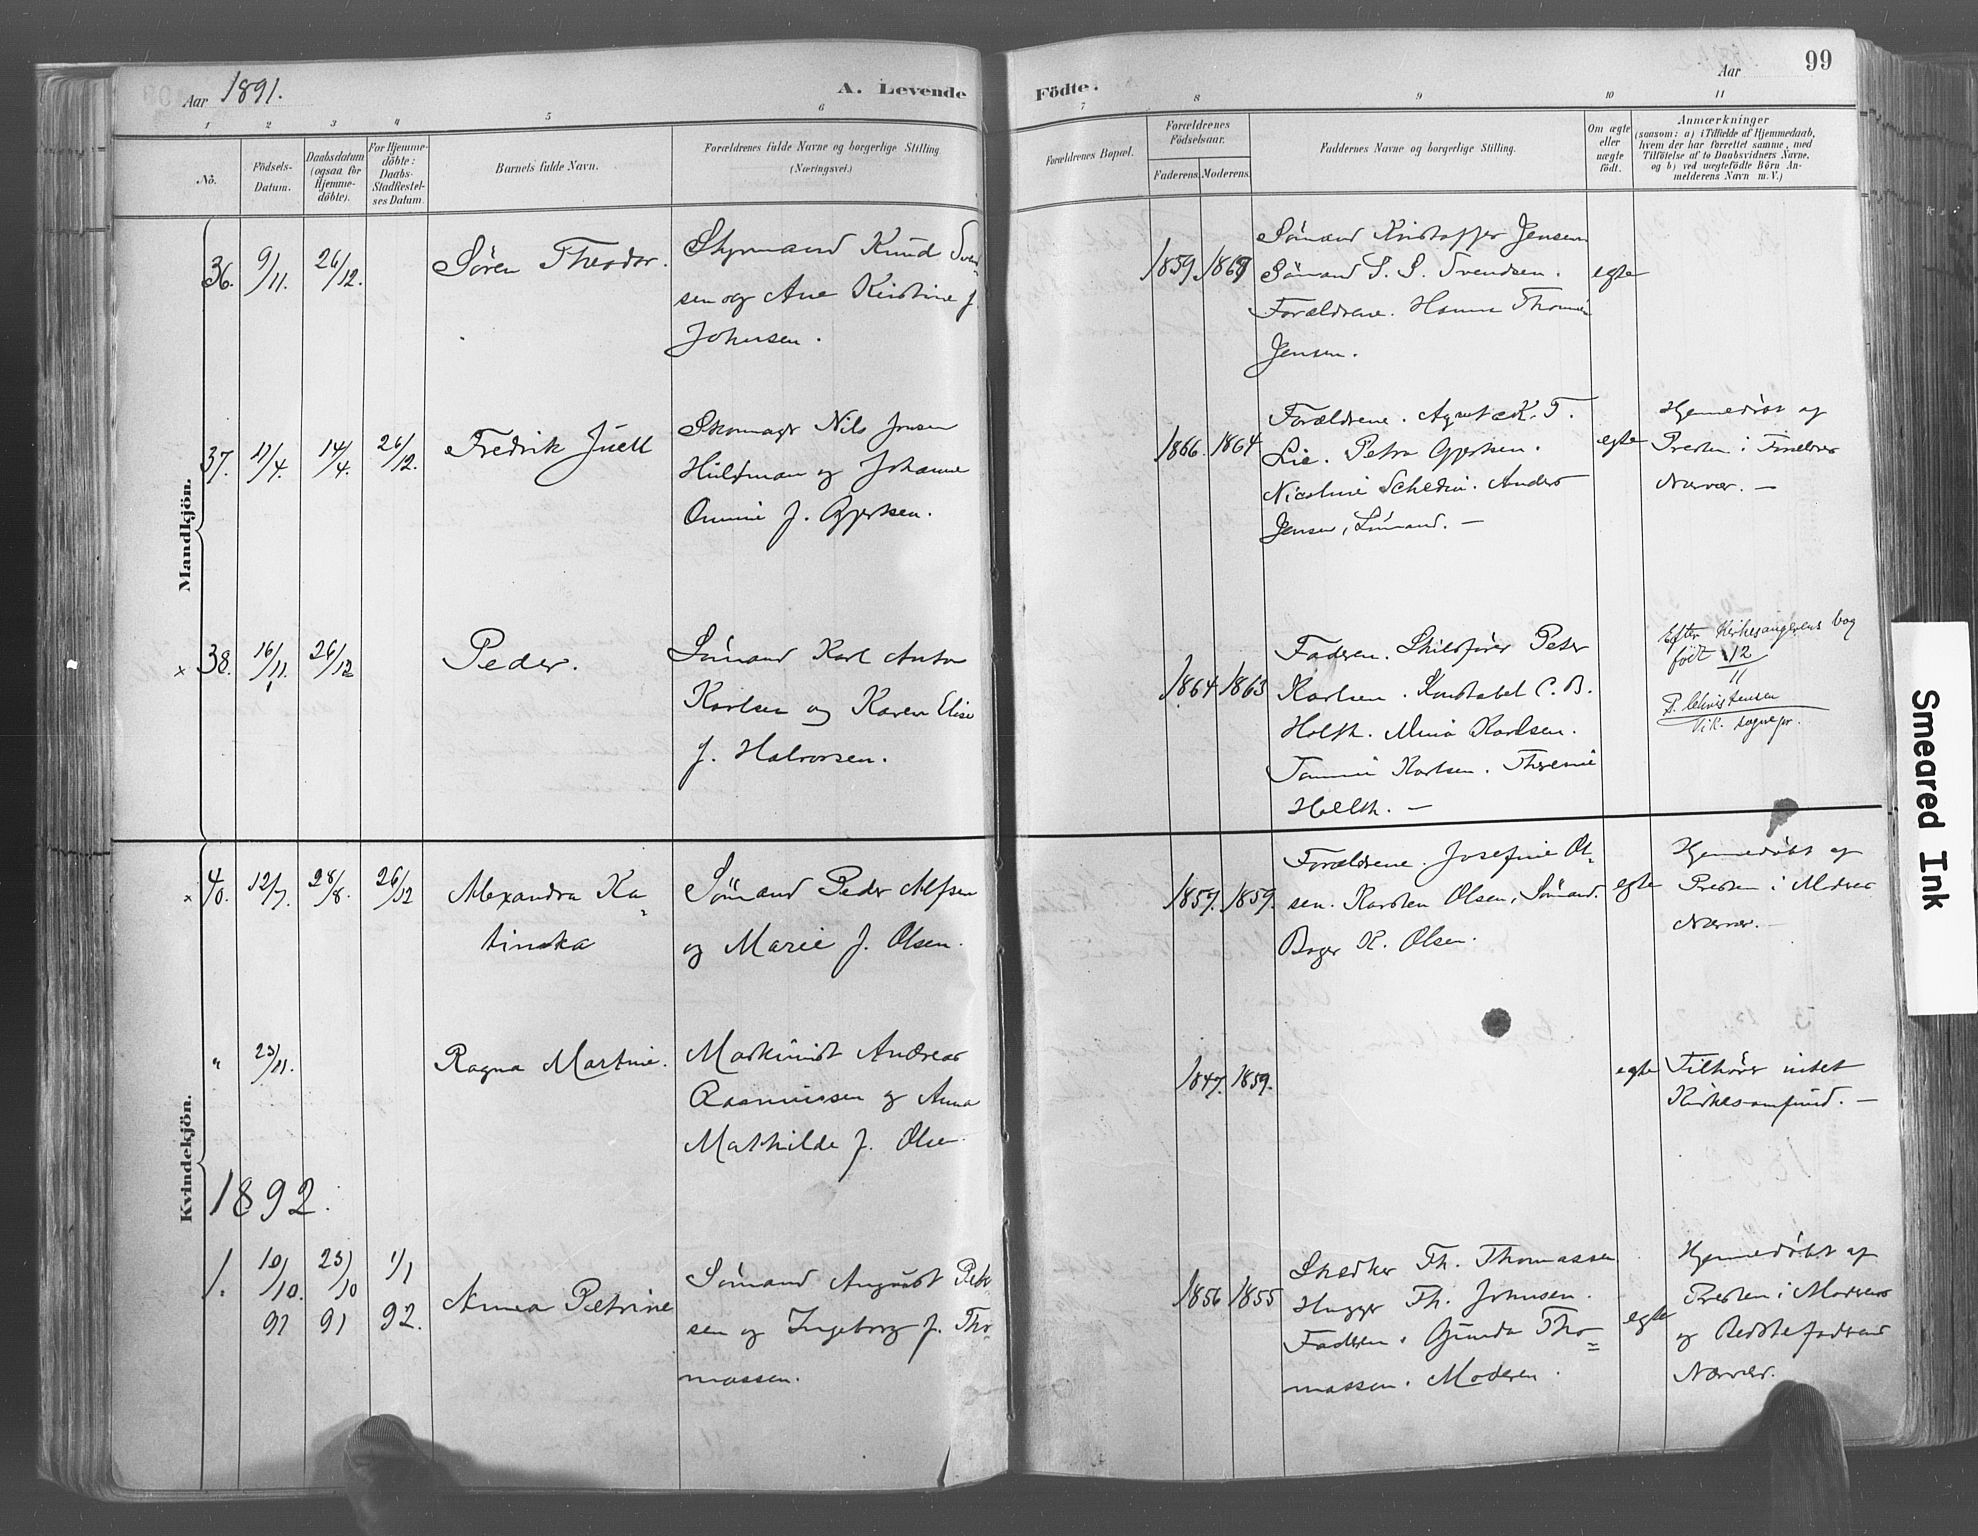 Aar 1891.
A. Levende
Födte.
Aar
99
1 2 3 4 5 6 7 8 9 10 11
No.
Födsels-
Datum.
Daabsdatum
(ogsaa for
Hjemme-
döbte).
For Hjemme-
döbte:
Daabs-
Stadfæstel-
ses Datum.
Barnets fulde Navn.
Forældrenes fulde Navne og borgerlige Stilling
(Næringsvei.)
Forældrenes Bopæl.
Forældrenes
Födselsaar.
Faderens. Moderens.
Faddernes Navne og borgerlige Stilling.
Om ægte
eller
uægte
födt.
Anmærkninger
(saasom: a) i Tilfælde af Hjemmedaab,
hvem der har forrettet samme, med
Tilföielse af to Daabsvidners Navne,
og b) ved uægtefödte Börn An-
melderens Navn m. V.)
Mandkjön.
36. 9/11. 26/12. Sören Theodor.
Styrmand Knud Svend-
sen og Ane Kristine f.
Johnsen.
1859. 1863
Sömand Kristoffer Jensen
Sömand S. S. Svendsen.
Forældrene. Hanna Thomine
Jensen.
egte
37. 11/4. 14/4. 26/12. Fredrik Juell
Skomager Nils Jensen
Huldman og Johanne
Omine f. Gjertsen.
1866. 1864
Forældrene. Agnete K. T.
Lie. Petra Gjertsen.
Nicoline Schedin. Anders
Jensen, Sömand. —
egte
Hjemmedöbt af
Presten i Fædres
Nærvær. —
x 38. 16/11. 26/12 Peder.
Sömand Karl Anton
Karlsen og Karen Elise
f. Halvorsen.
1864. 1863
Faderen. Skibsförer Peter
Karlsen. Konstabel C. B.
Holth. Mina Karlsen.
Tomine Karlsen. Theresie
Holth. —
Efter Kirkesangerens bog
födt 12/11
P. Christensen
Vik. sognepr.
Kvindekjön.
x 40. 12/7. 28/8. 26/12 Alexandra Ka-
tinska
Sömand Peder Alfsen
og Marie f. Olsen.
1859. 1859.
Forældrene. Josefine Ol-
sen. Karsten Olsen, Sömand.
Bager K. Olsen.
egte
Hjemmedöbt af
Presten i Modrens
Nærvær. —
" 23/11. Ragna Martine.
Maskinist Andreas
Rasmussen og Anna
Mathilde f. Olsen
1847. 1859.
egte
Tilhörer intet
Kirkesamfund. —
1892.
1. 10/10. 91 23/10 91 1/1 92. Anna Petrine
Sömand August Peter-
sen og Ingeborg f. Tho-
massen.
1856 1855
Snedker Th. Thomassen
Hugger Th. Johnsen.
Faderen. Gunda Tho-
massen. Moderen.
egte
Hjemmedöbt af
Presten i Moderens
og Bedstefaderens
Nærvær.
Smeared Ink